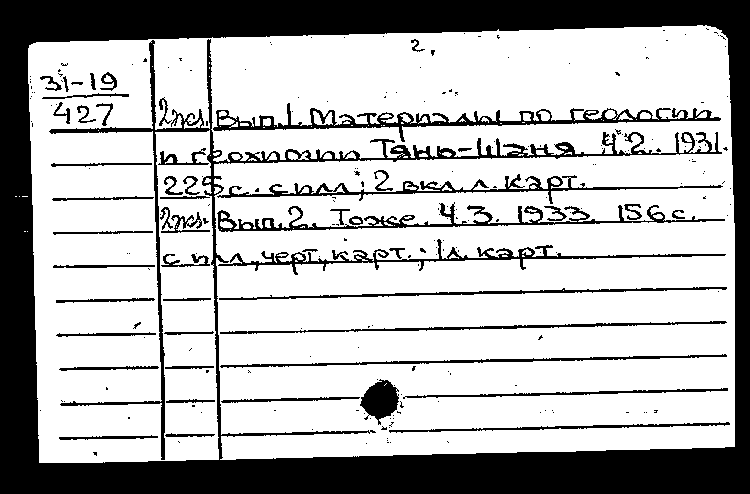 2.
31-19
427
2экз. Вып.1. Материалы по геологии
и геохимии Тянь-Шаня. Ч.2. 1931.
225с. с илл; 2 вкл. л. карт.
2экз. Вып.2. Тоже. Ч.3. 1933. 156с.
с илл, черт, карт.; 1л. карт.